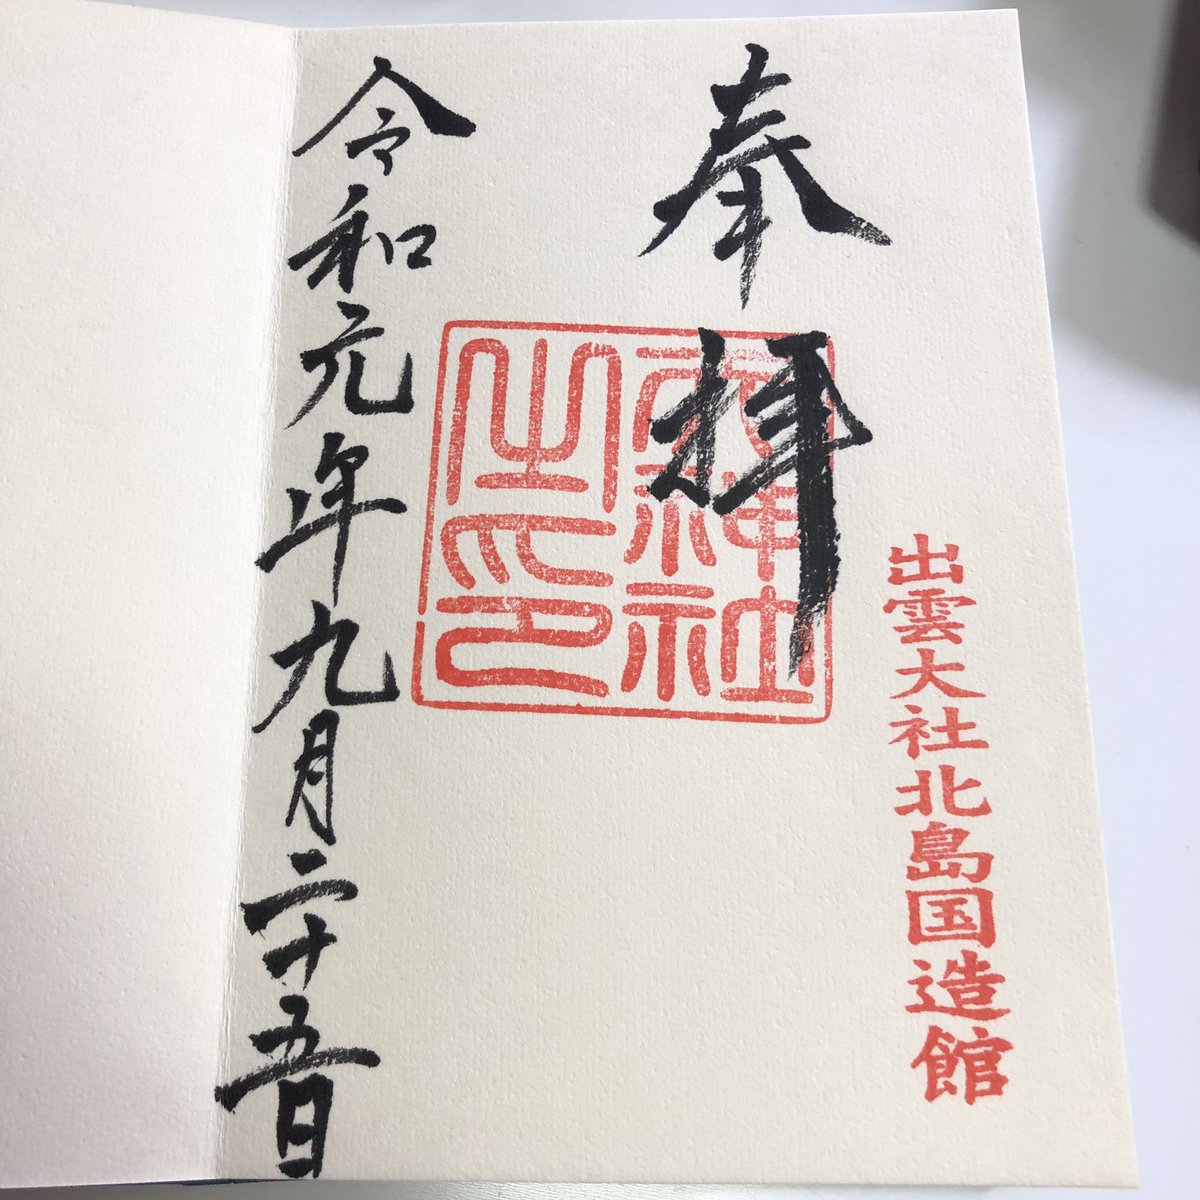 奉拝
出雲大社北島国造館
天神社
之印
令和元年九月二十五日